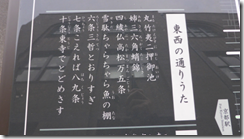 東西の通りうた
丸竹夷二押御池
姉三六角蛸錦
四綾仏高松万五条
雪駄ちゃらちゃら魚の棚
六条三哲とおりすぎ
七条こえれば八九条
十条東寺でとどめさす
京都駅